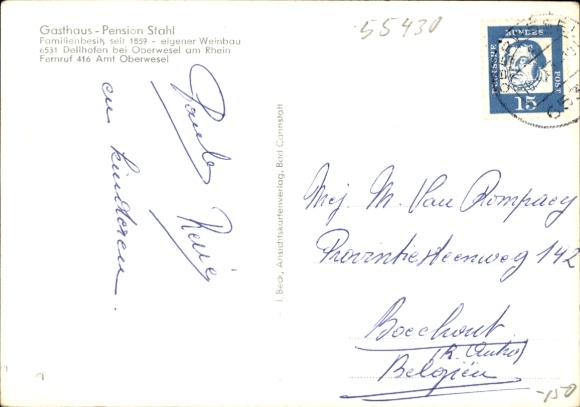 Gasthaus - Pension Stahl
Familienbesitz seit 1859 - eigener Weinbau
6531 Dellhofen bei Oberwesel am Rhein
Fernruf 416 Amt Oberwesel
55430
DEUTSCHE BUNDESPOST
15
en kinderen.
J. Beck, Ansichtskartenverlag, Bad Cannstatt
Mej. M. Van Rompaey
Provinciesteenweg 142
Boechout
(K. Antw.)
België
-150